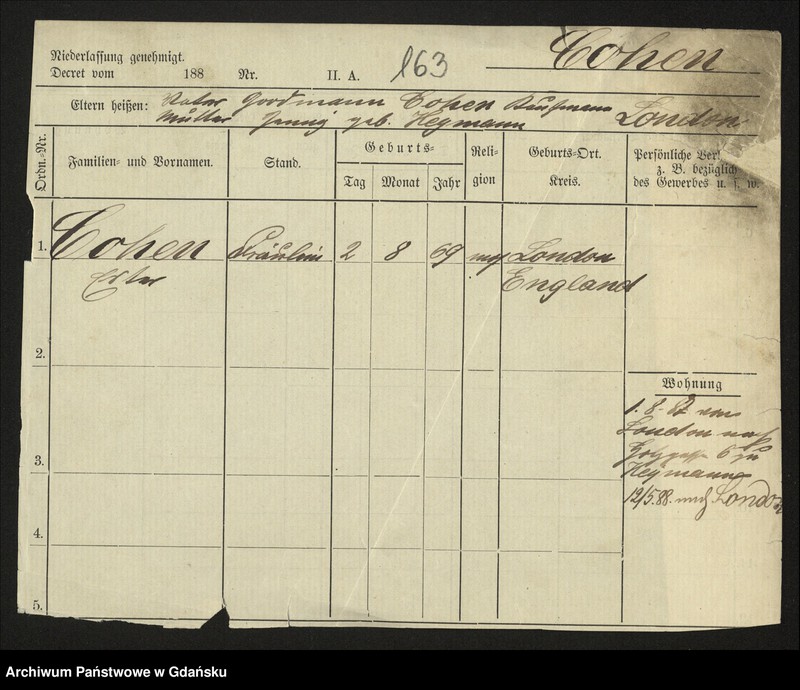 Cohen
Niederlassung genehmigt.
Decret vom 188 Nr. II. A. 163
Eltern heißen: Vater Goodmann Cohen Kaufmann London
Mutter geb. Heymann
Ordn.-Nr.
Familien- und Vornamen.
Stand.
Geburts-
Tag Monat Jahr
Reli-
gion
Geburts-Ort.
Kreis.
Persönliche Ver
z. B. bezüglich
des Gewerbes u. s. w.
1. Cohen Fräulein 2 8 69 London
England
2.
3.
4.
5.
Wohnung
1. 8. von
London nach
6
Heymann
12/5.88. nach London
Archiwum Państwowe w Gdańsku